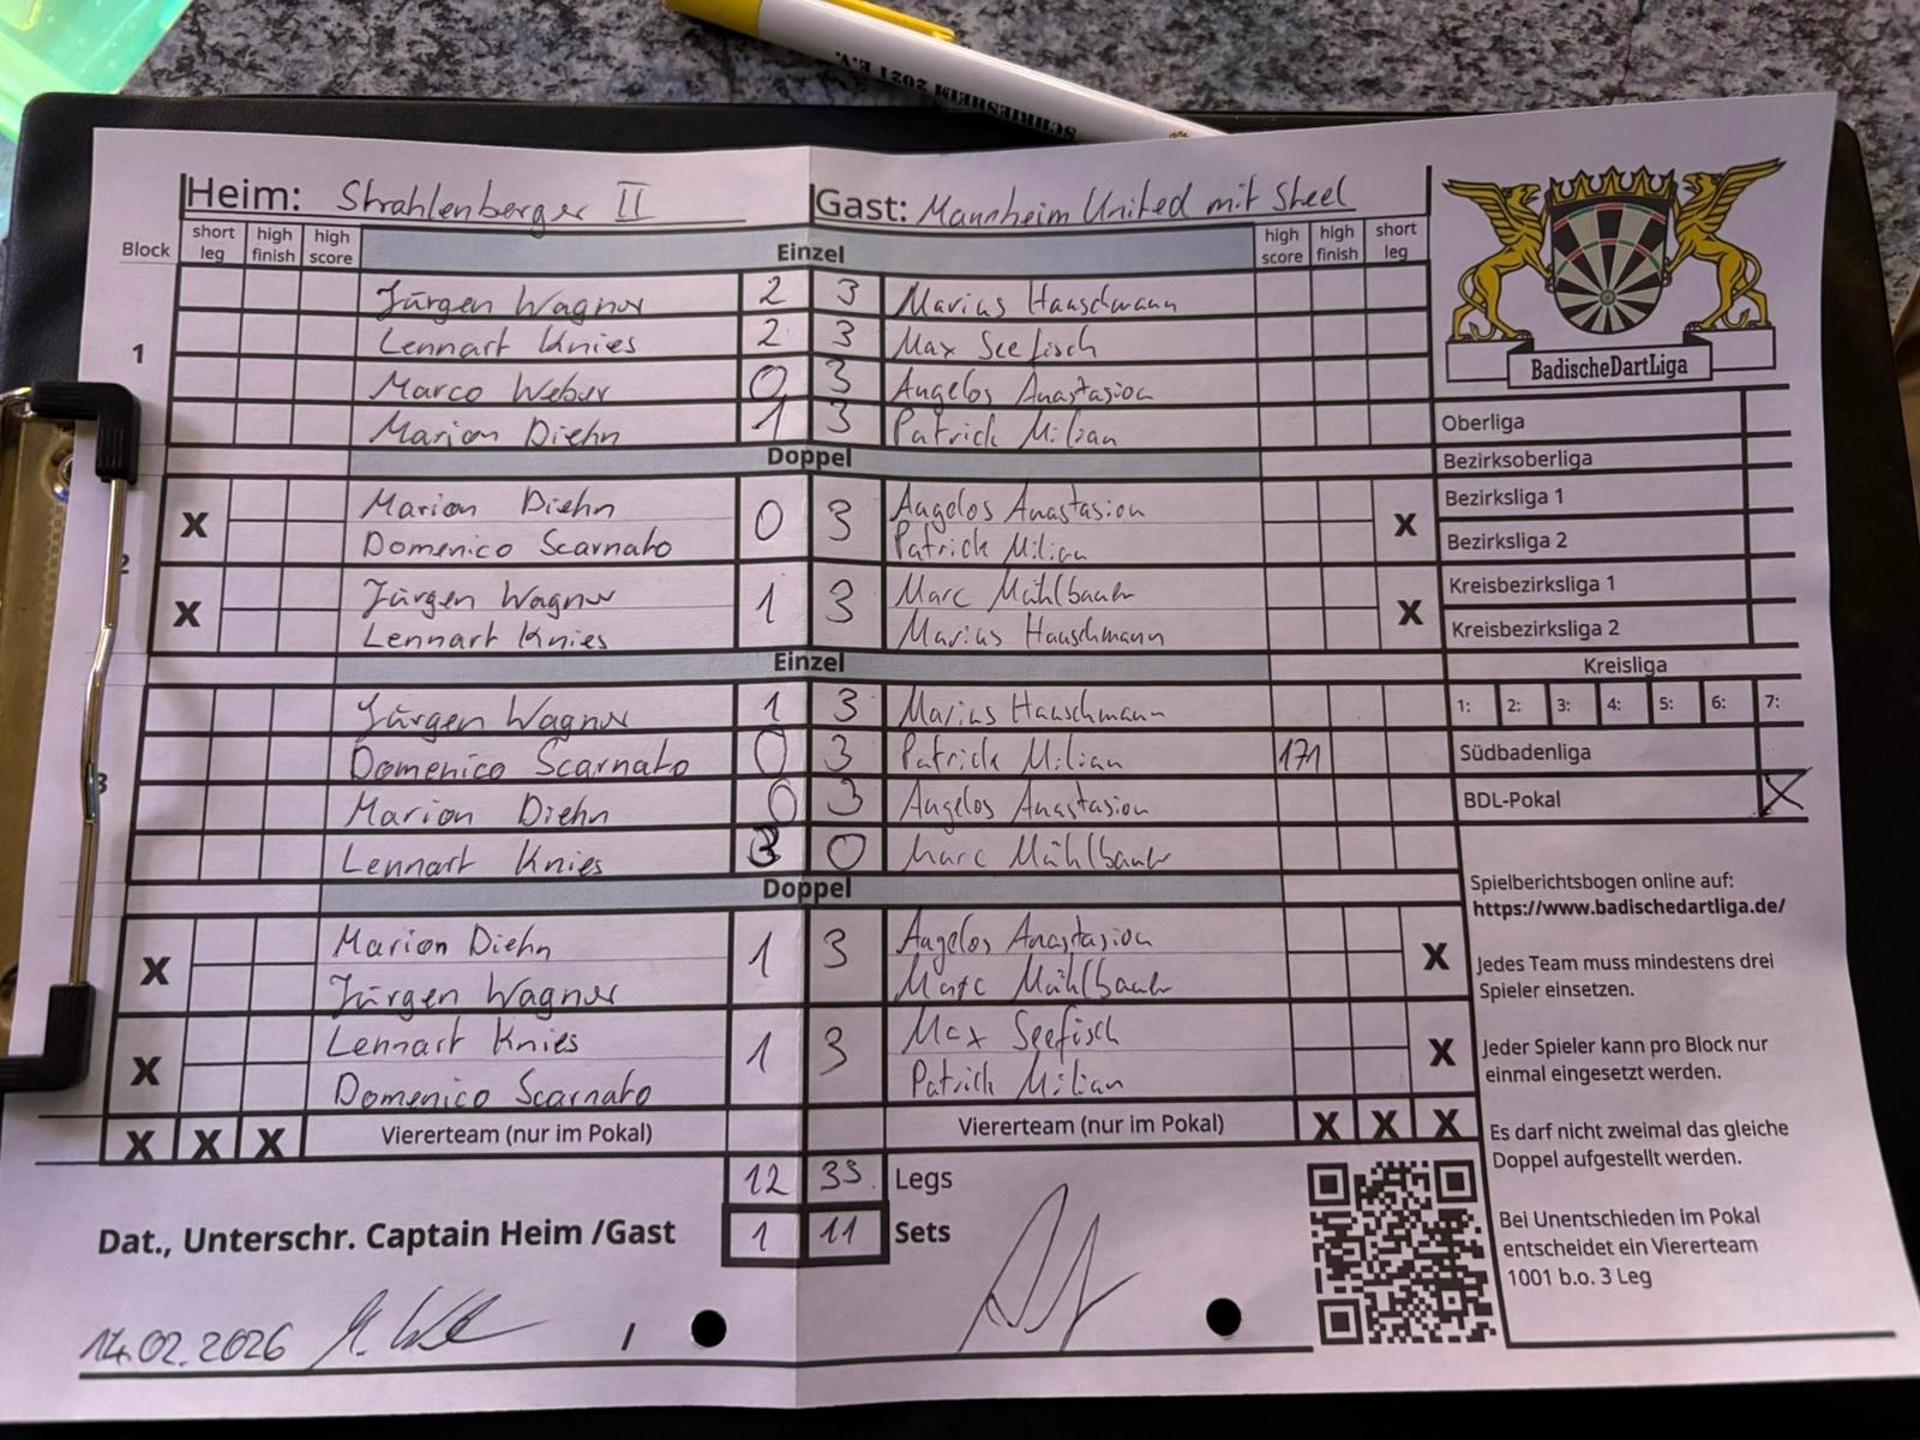 SCHRIESHEIM 2021 E.V.
Heim: Strahlenberger II Gast: Mannheim United mit Steel
Block short leg high finish high score Einzel high score high finish short leg
1
Jürgen Wagner 2 3 Marius Hauschmann
Lennart Knies 2 3 Max Seefisch
Marco Weber 0 3 Angelos Anastasiou
Marion Diehn 1 3 Patrick Milian
Doppel
2
X Marion Diehn 0 3 Angelos Anastasiou X
Domenico Scarnato Patrick Milian
X Jürgen Wagner 1 3 Marc Mühlbauer X
Lennart Knies Marius Hauschmann
Einzel
3
Jürgen Wagner 1 3 Marius Hauschmann
Domenico Scarnato 0 3 Patrick Milian 171
Marion Diehn 0 3 Angelos Anastasiou
Lennart Knies 3 0 Marc Mühlbauer
Doppel
X Marion Diehn 1 3 Angelos Anastasiou X
Jürgen Wagner Marc Mühlbauer
X Lennart Knies 1 3 Max Seefisch X
Domenico Scarnato Patrick Milian
X X X Viererteam (nur im Pokal) Viererteam (nur im Pokal) X X X
12 33 Legs
Dat., Unterschr. Captain Heim /Gast 1 11 Sets
14.02.2026 /
BadischeDartLiga
Oberliga
Bezirksoberliga
Bezirksliga 1
Bezirksliga 2
Kreisbezirksliga 1
Kreisbezirksliga 2
Kreisliga
1: 2: 3: 4: 5: 6: 7:
Südbadenliga
BDL-Pokal X
Spielberichtsbogen online auf:
https://www.badischedartliga.de/
Jedes Team muss mindestens drei
Spieler einsetzen.
Jeder Spieler kann pro Block nur
einmal eingesetzt werden.
Es darf nicht zweimal das gleiche
Doppel aufgestellt werden.
Bei Unentschieden im Pokal
entscheidet ein Viererteam
1001 b.o. 3 Leg